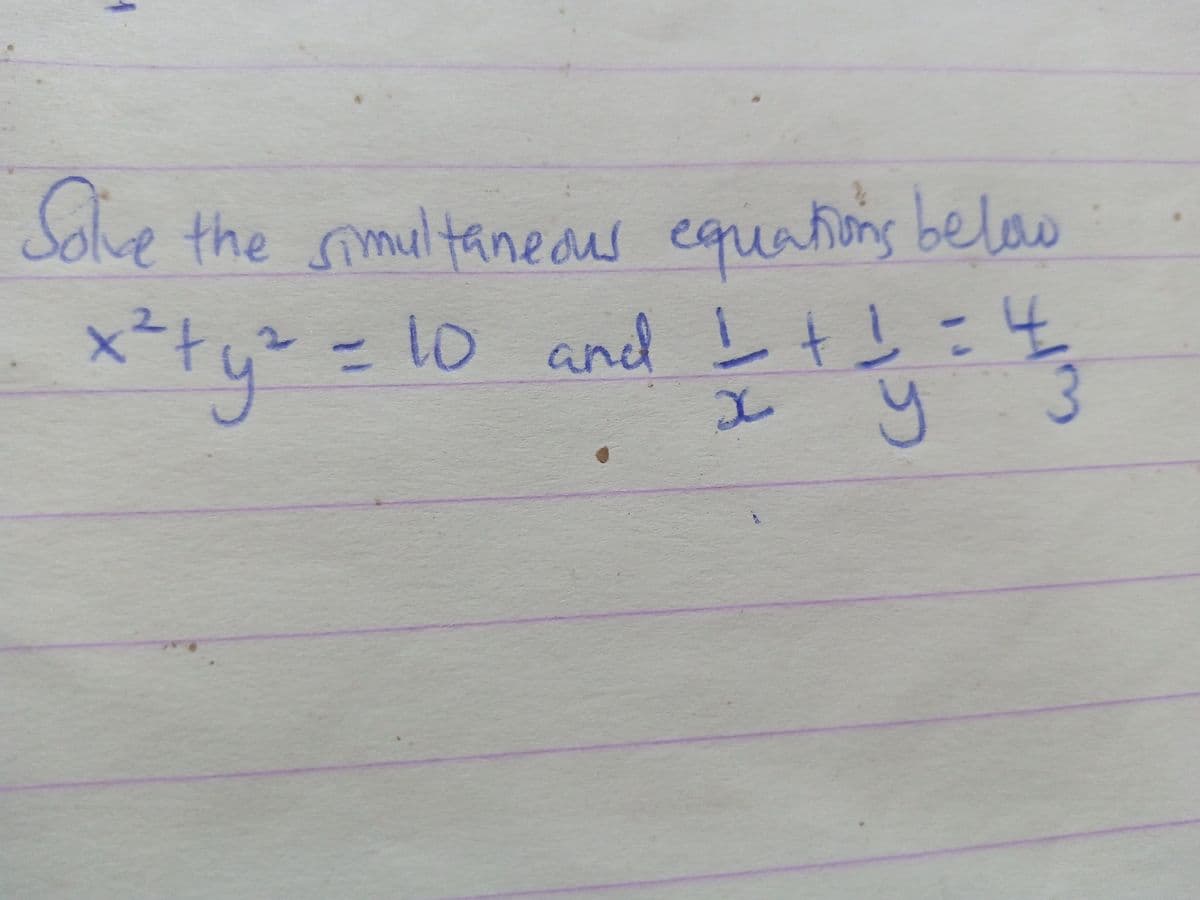 Solve the simultaneous equations below
x² + y² = 10 and 1/x + 1/y = 4/3